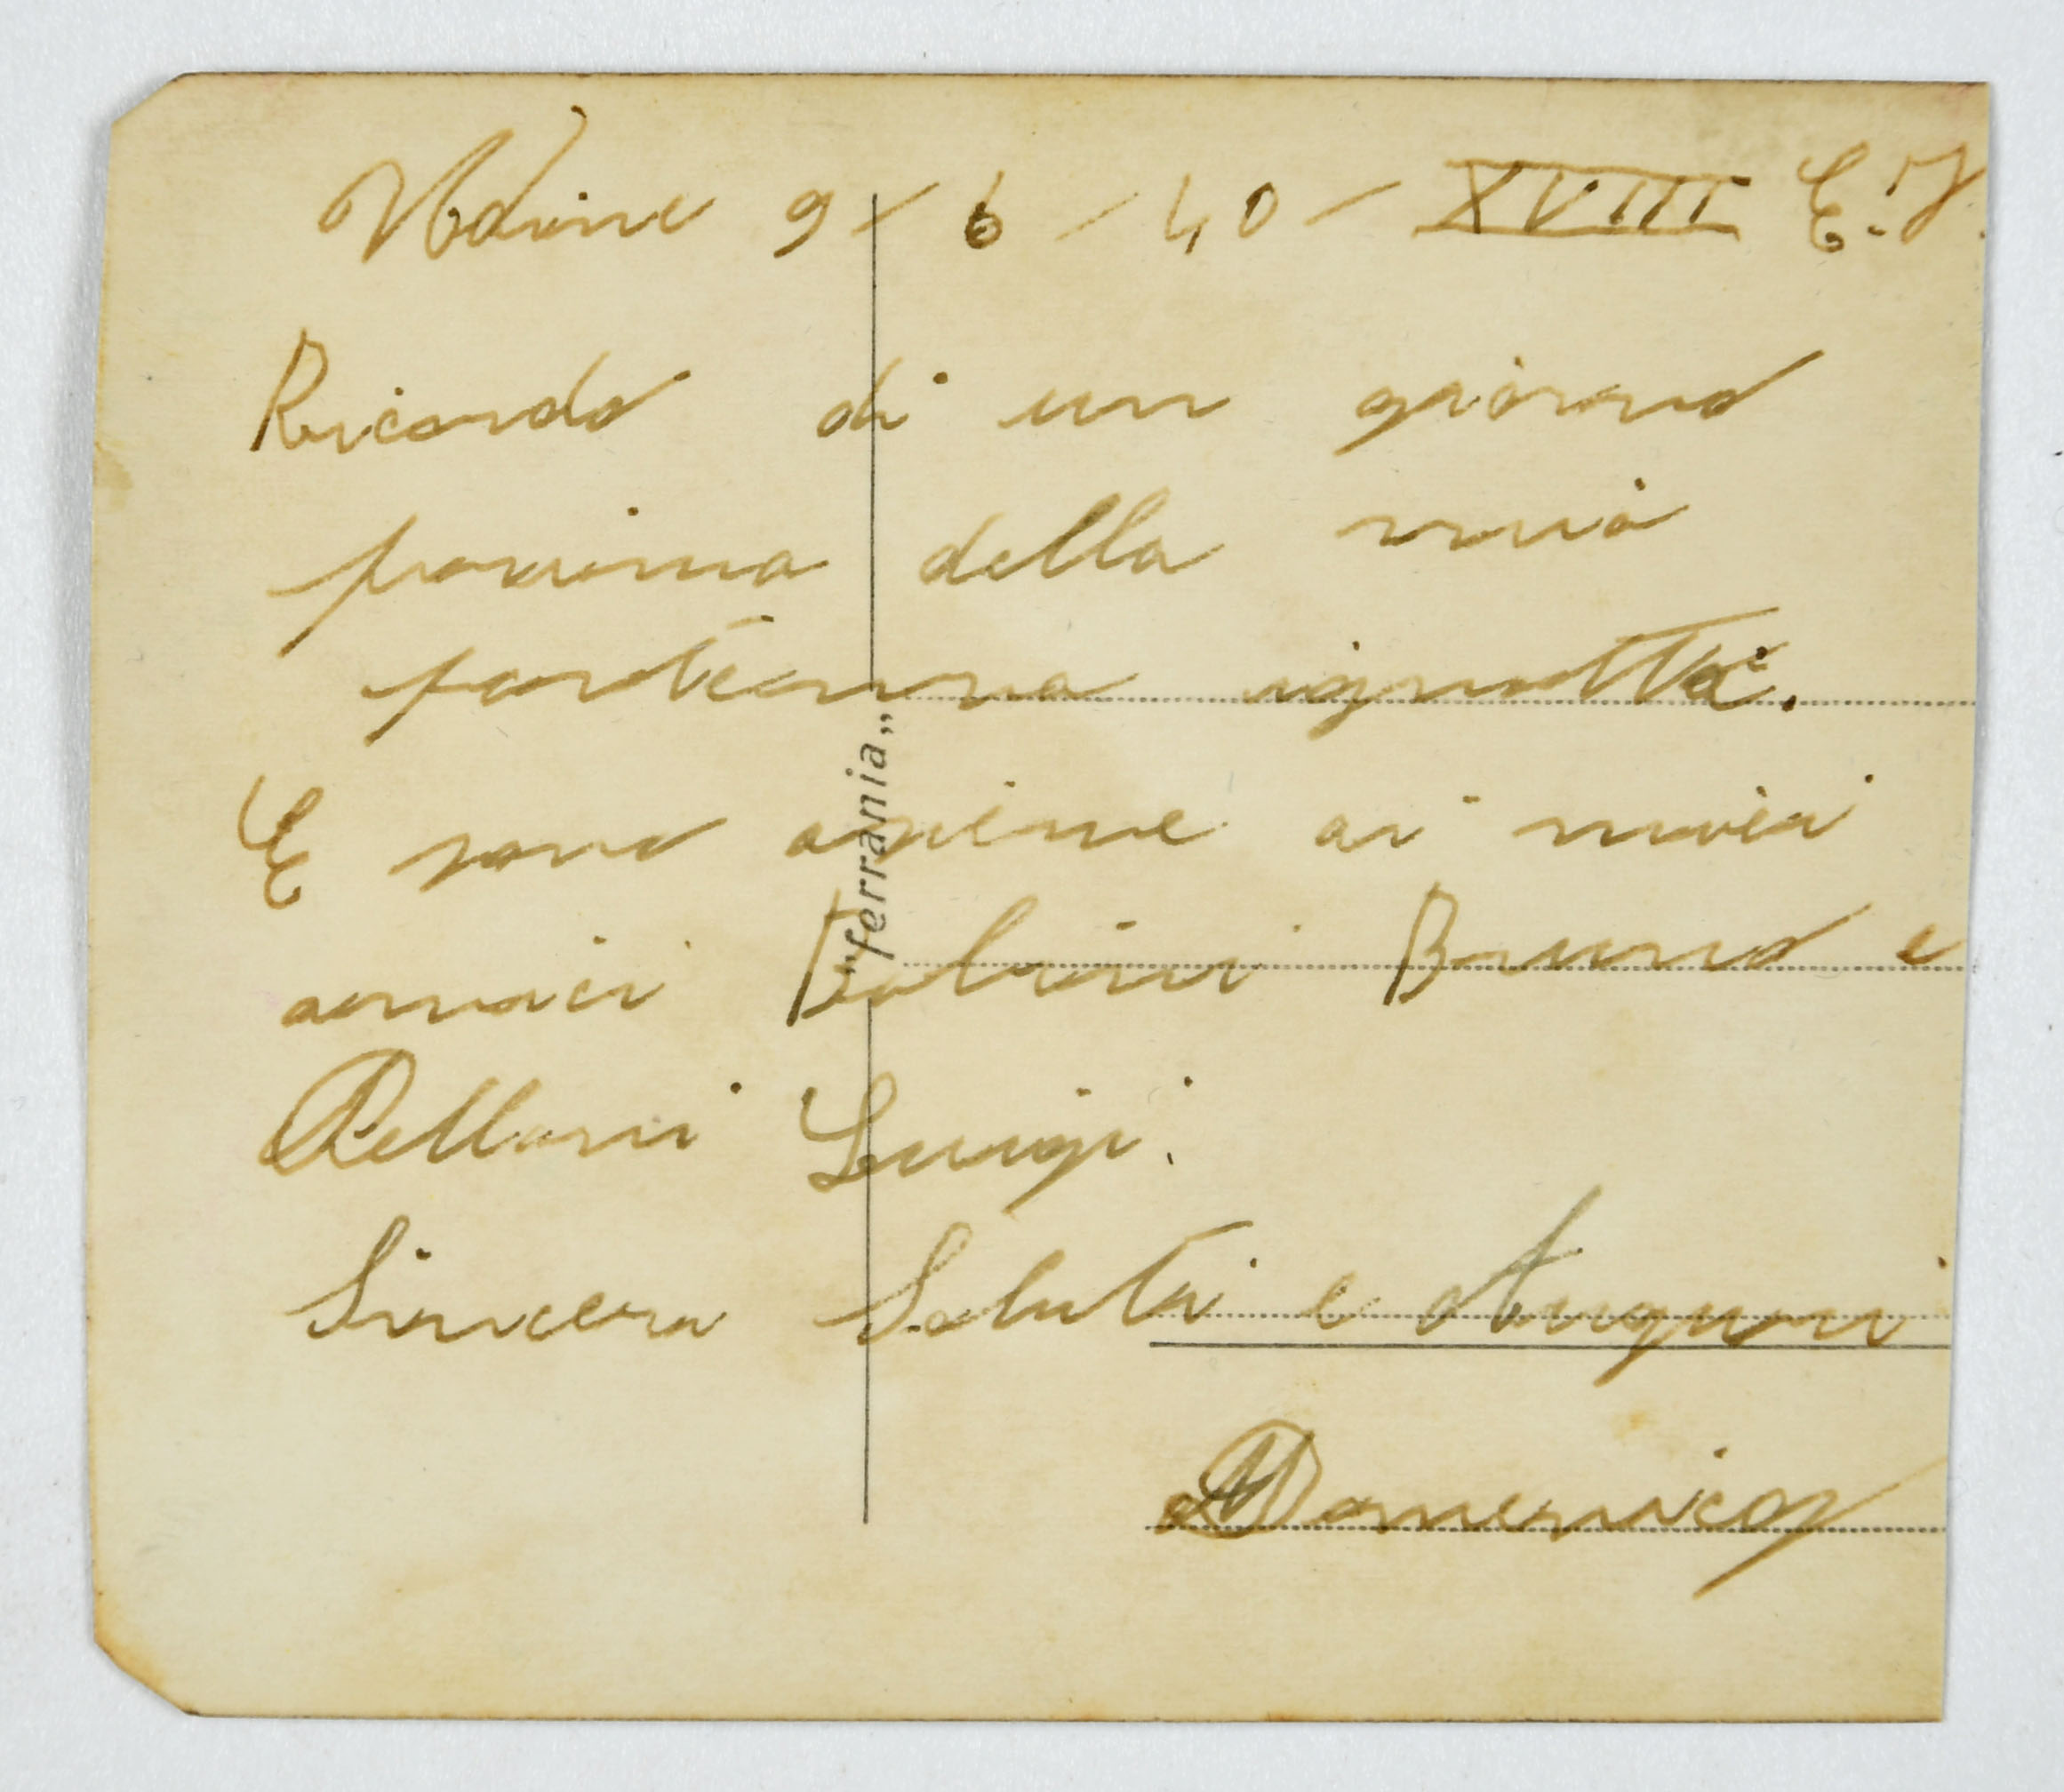 Udine 9-6-40-XVIII E.F.
Ricordo di un giorno
proxima della mia
partenza ignotta.
E sono asieme ai miei
amici Bruno e
Pellarii Luigi.
Sinceri Saluti e Auguri
Domenico
"ferrania"